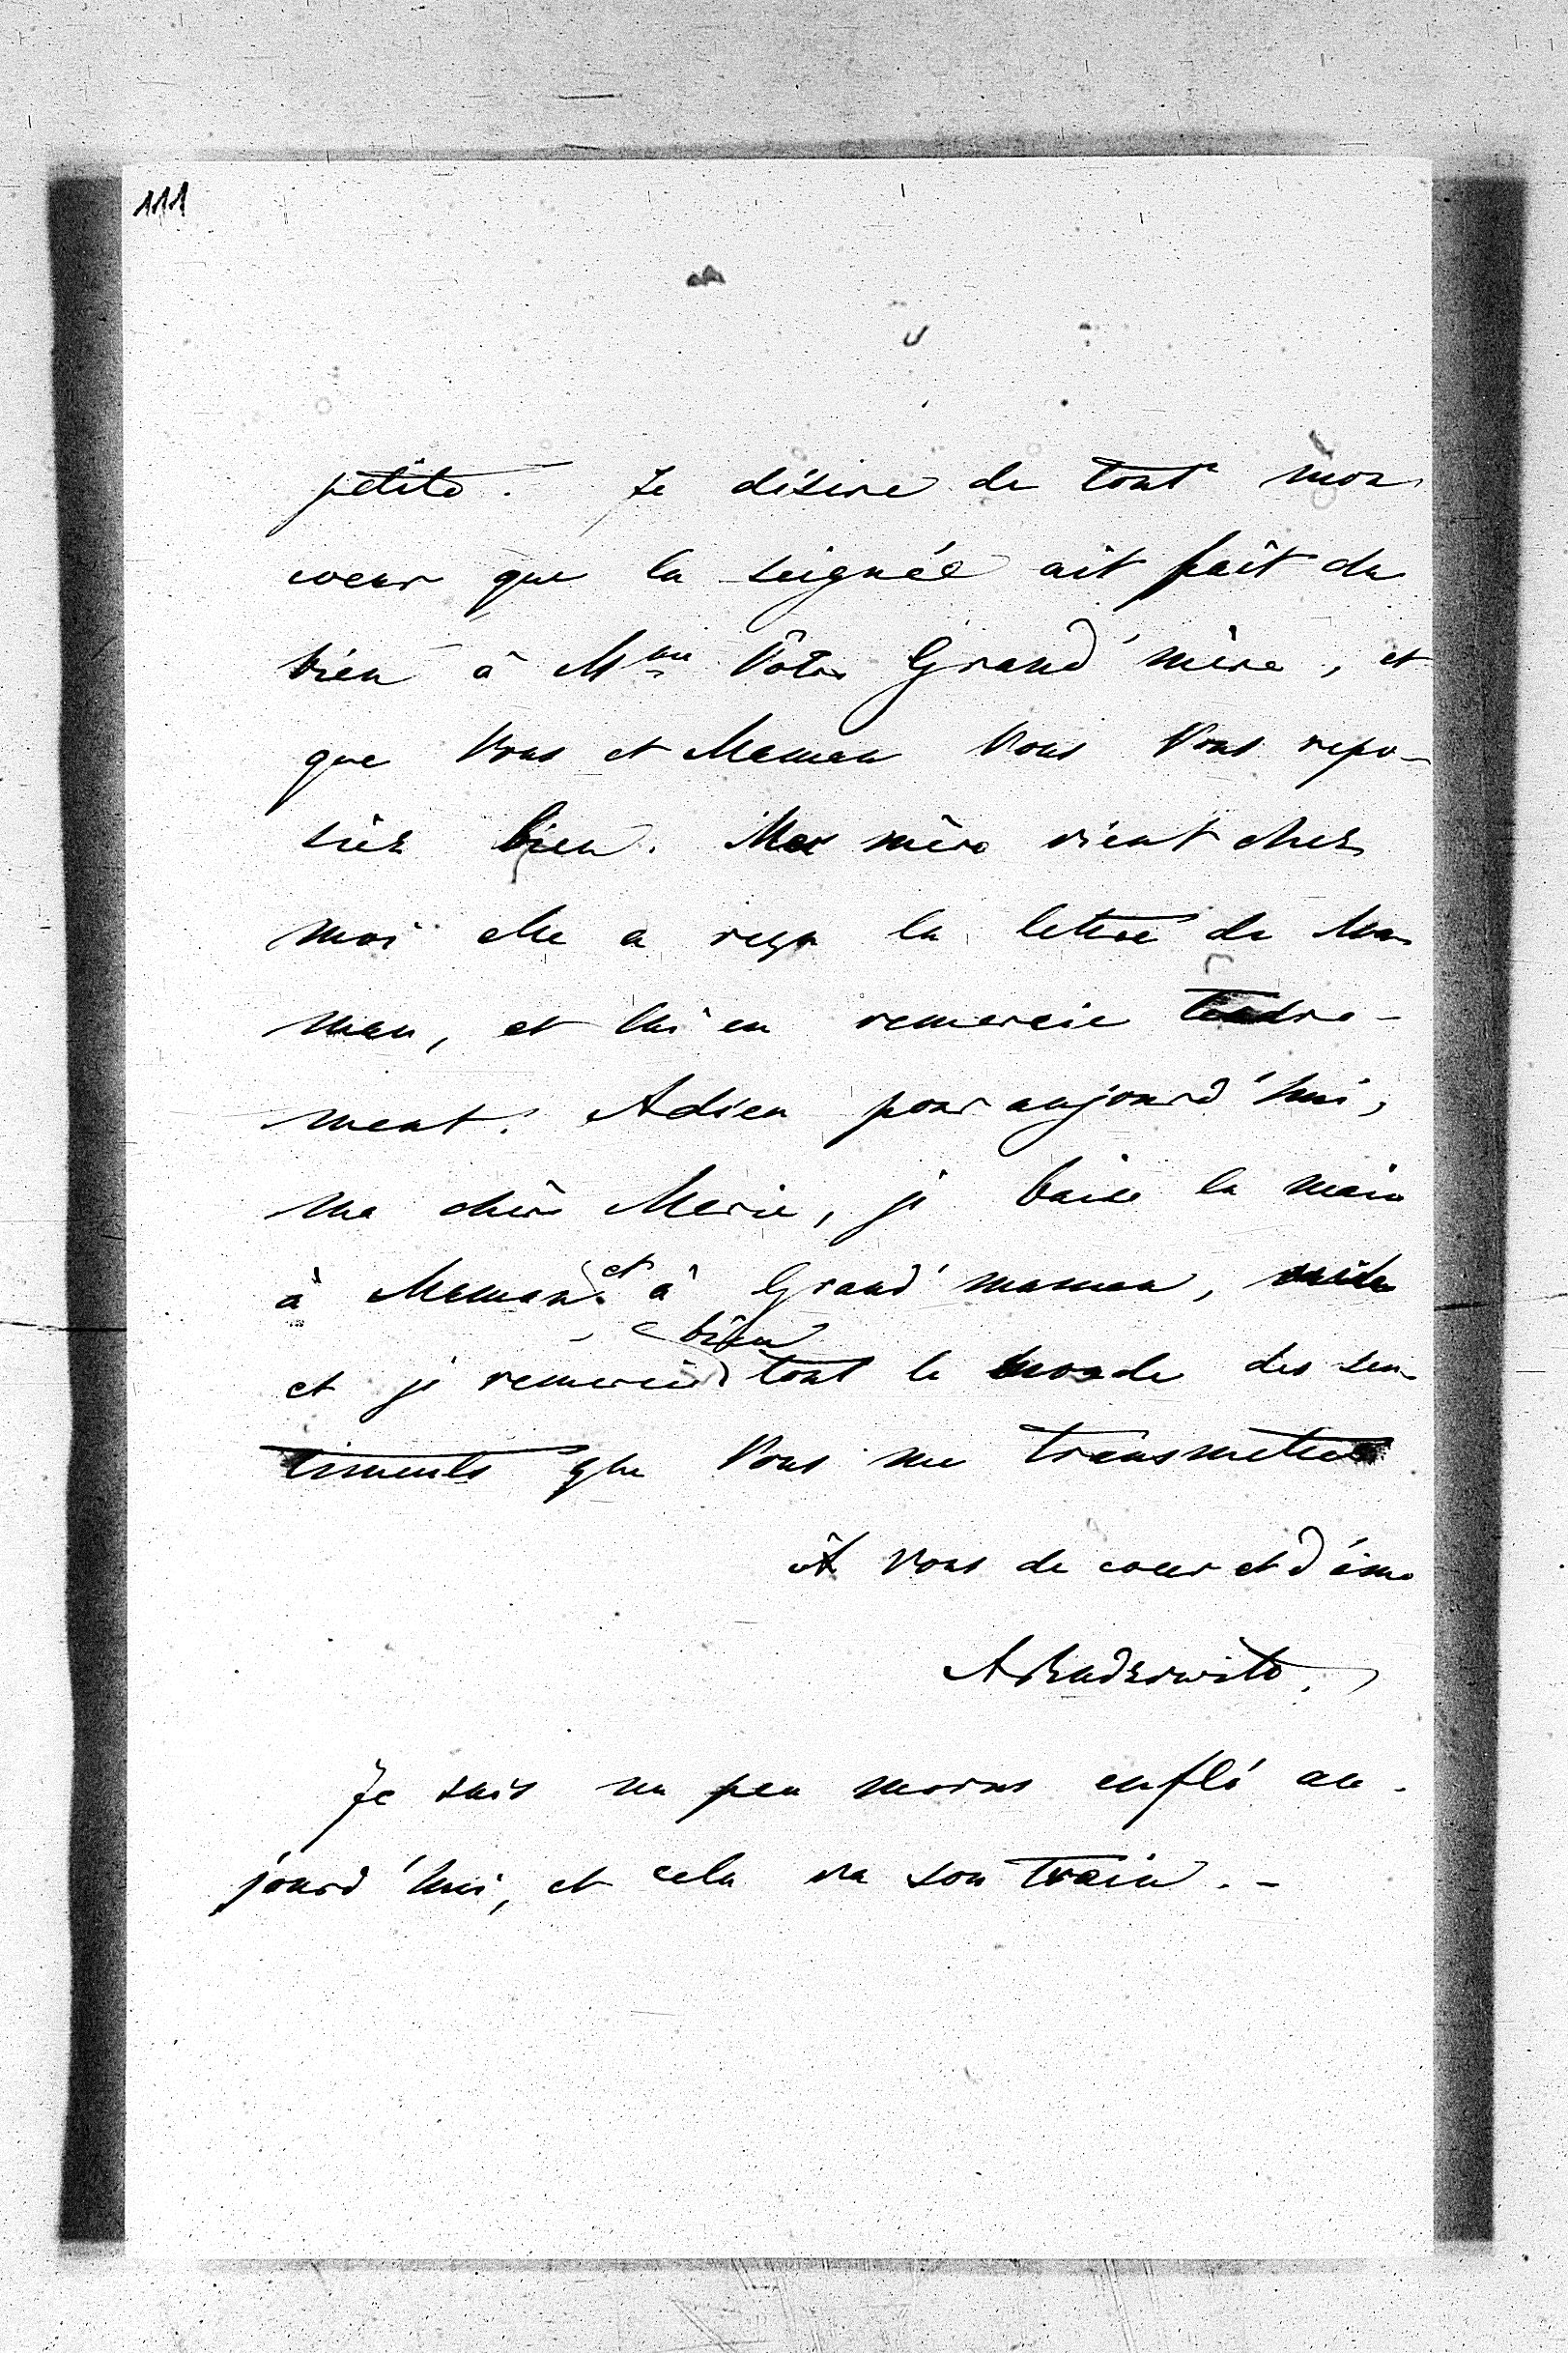 111
petite. Je désire de tout mon
coeur que la seignée ait fait du
bien à Mme Vôtre Grand'mère, et
que Vous et Maman Vous Vous repo-
siéz bien. Ma mère vient chez
moi elle a reçu la lettre de Ma-
man, et lui en remercie tendre-
ment. Adieu pour aujourd'hui,
ma chère Marie, je baise la main
à Maman et à Grand'maman,
bien
et je remercie tout le monde des sen-
timents que Vous me transmettez
À Vous de coeur et d'âme
Je suis un peu moins enflé au-
jourd'hui, et cela va son train. -